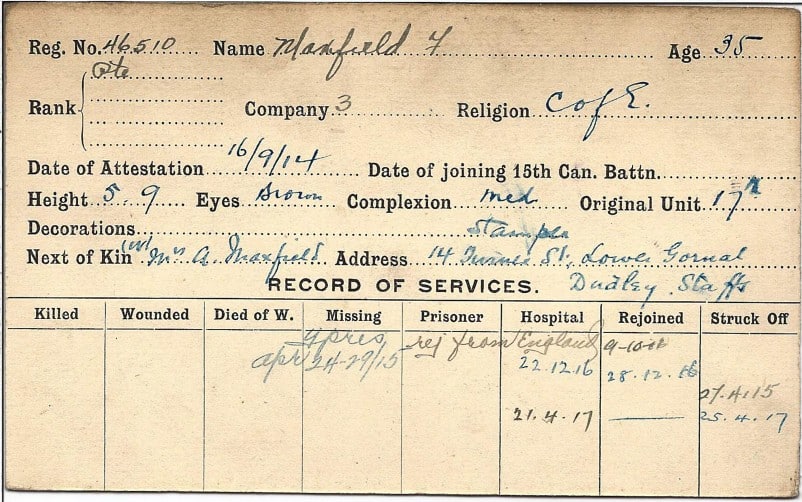 Reg. No. 46510 Name Maxfield F Age 35
Pte
Rank Company 3 Religion C of E.
Date of Attestation 16/9/14 Date of joining 15th Can. Battn.
Height 5.9 Eyes Brown Complexion med Original Unit 17th
Decorations Stamper
Next of Kin (W) Mrs A. Maxfield Address 14 Turner St., Lower Gornal
RECORD OF SERVICES. Dudley Staffs
Killed Wounded Died of W. Missing Prisoner Hospital Rejoined Struck Off
Ypres rej from England 9-10-16
apr 24-29/15 22.12.16 28.12.16
27.4.15
21.4.17 25.4.17